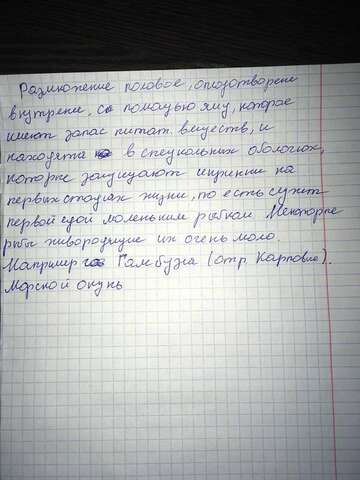 Размножение половое, оплодотворени
внутрене, с помощью яиц, которые
имеют запас питат. веществ, и
находятся в специальных оболочках,
которые защищают икринки на
первых стадиях жизни, то есть служит
первой едой маленьким рыбкам. Некоторые
рыбы живородящие их очень мало.
Например Гамбузия (отр. Карповые).
Морской окунь